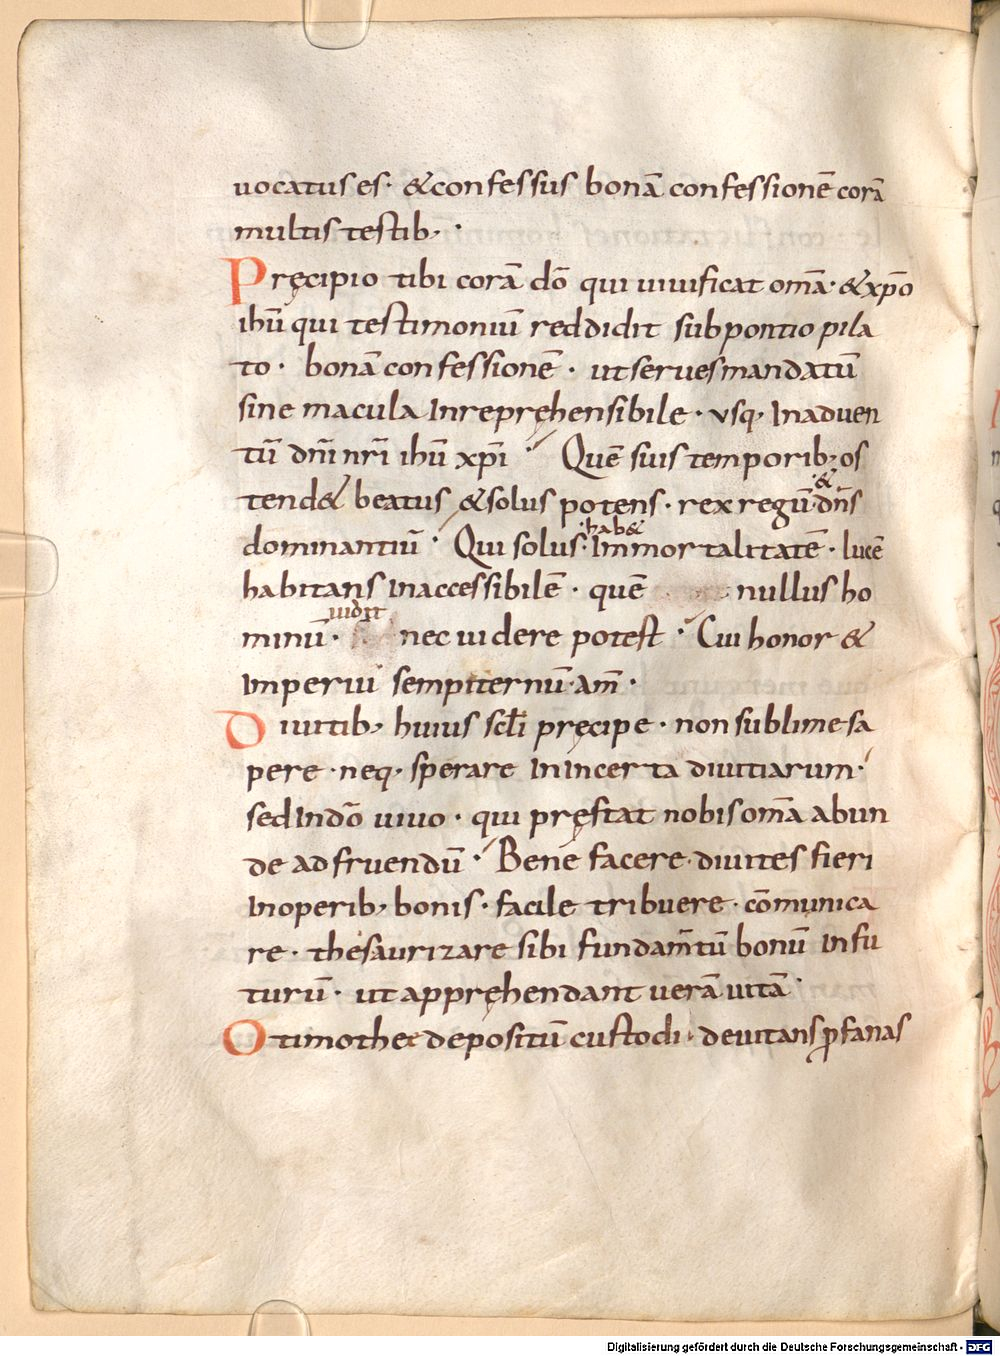 uocatus es · & confessus bonā confessionē corā
multis testib; ·
Pręcipio tibi corā dō qui uiuificat om̄a · & xp̄o
ihū qui testimoniū reddidit sub pontio pila
to · bonā confessionē · ut serues mandatū
sine macula Inrepręhensibile · vsq; Inaduen
tū dn̄i nr̄i ihū xp̄i · Quē suis temporib; os
tend& beatus & solus potens · rex regū · & dn̄s
dominantiū · Qui solus · hab& Immortalitatē · lucē
habitans Inaccessibilē · quē nullus ho
minū · uidit nec uidere potest · Cui honor &
Imperiū sempiternū · am̄ ·
Diuitib; huius sc̄li pręcipe · non sublime sa
pere · neq; sperare In Incerta diuitiarum ·
sed In dō uiuo · qui pręstat nobis om̄a abun
de ad fruendū · Bene facere · diuites fieri
In operib; bonis · facile tribuere · cōmunica
re · thesaurizare sibi fundam̄tū bonū In fu
turū · ut appręhendant uerā uitā ·
O timothee depositū custodi · deuitans ꝓfanas
Digitalisierung gefördert durch die Deutsche Forschungsgemeinschaft - DFG